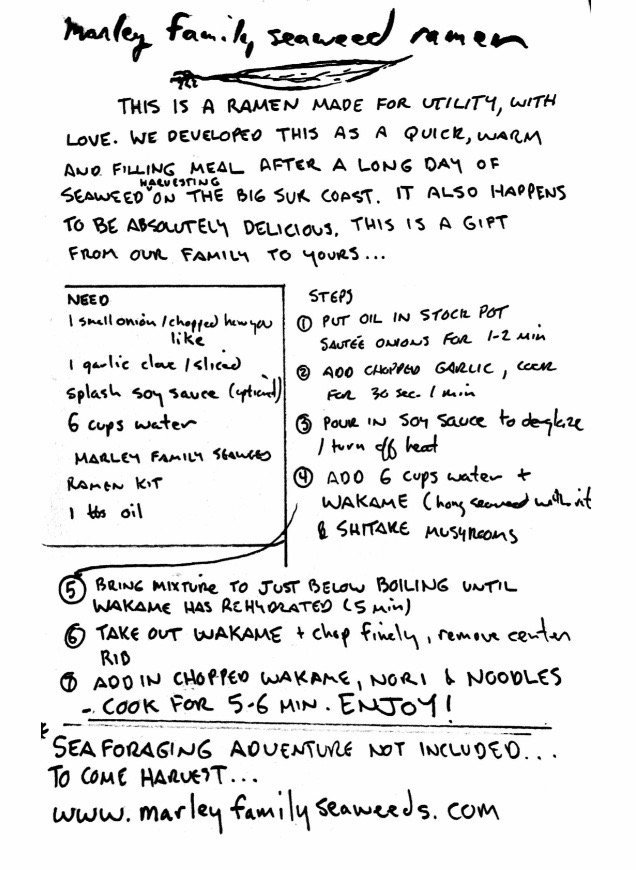 marley family seaweed ramen
THIS IS A RAMEN MADE FOR UTILITY, WITH
LOVE. WE DEVELOPED THIS AS A QUICK, WARM
AND FILLING MEAL AFTER A LONG DAY OF
SEAWEED HARVESTING ON THE BIG SUR COAST. IT ALSO HAPPENS
TO BE ABSOLUTELY DELICIOUS. THIS IS A GIFT
FROM OUR FAMILY TO YOURS...
NEED
1 small onion / chopped how you
like
1 garlic clove / sliced
splash soy sauce (optional)
6 cups water
MARLEY FAMILY SEAWEED
RAMEN KIT
1 tbs oil
STEPS
① PUT OIL IN STOCK POT
SAUTÉE ONIONS FOR 1-2 MIN
② ADD CHOPPED GARLIC, COOK
FOR 30 SEC. / MIN
③ POUR IN SOY SAUCE to deglaze
/ turn off heat
④ ADD 6 cups water +
WAKAME (long seaweed without
& SHITAKE MUSHROOMS
⑤ BRING MIXTURE TO JUST BELOW BOILING UNTIL
WAKAME HAS REHYDRATED (5 MIN)
⑥ TAKE OUT WAKAME + chop finely, remove center
RIB
⑦ ADD IN CHOPPED WAKAME, NORI & NOODLES
- COOK FOR 5-6 MIN. ENJOY!
SEA FORAGING ADVENTURE NOT INCLUDED...
TO COME HARVEST...
www.marleyfamilyseaweeds.com